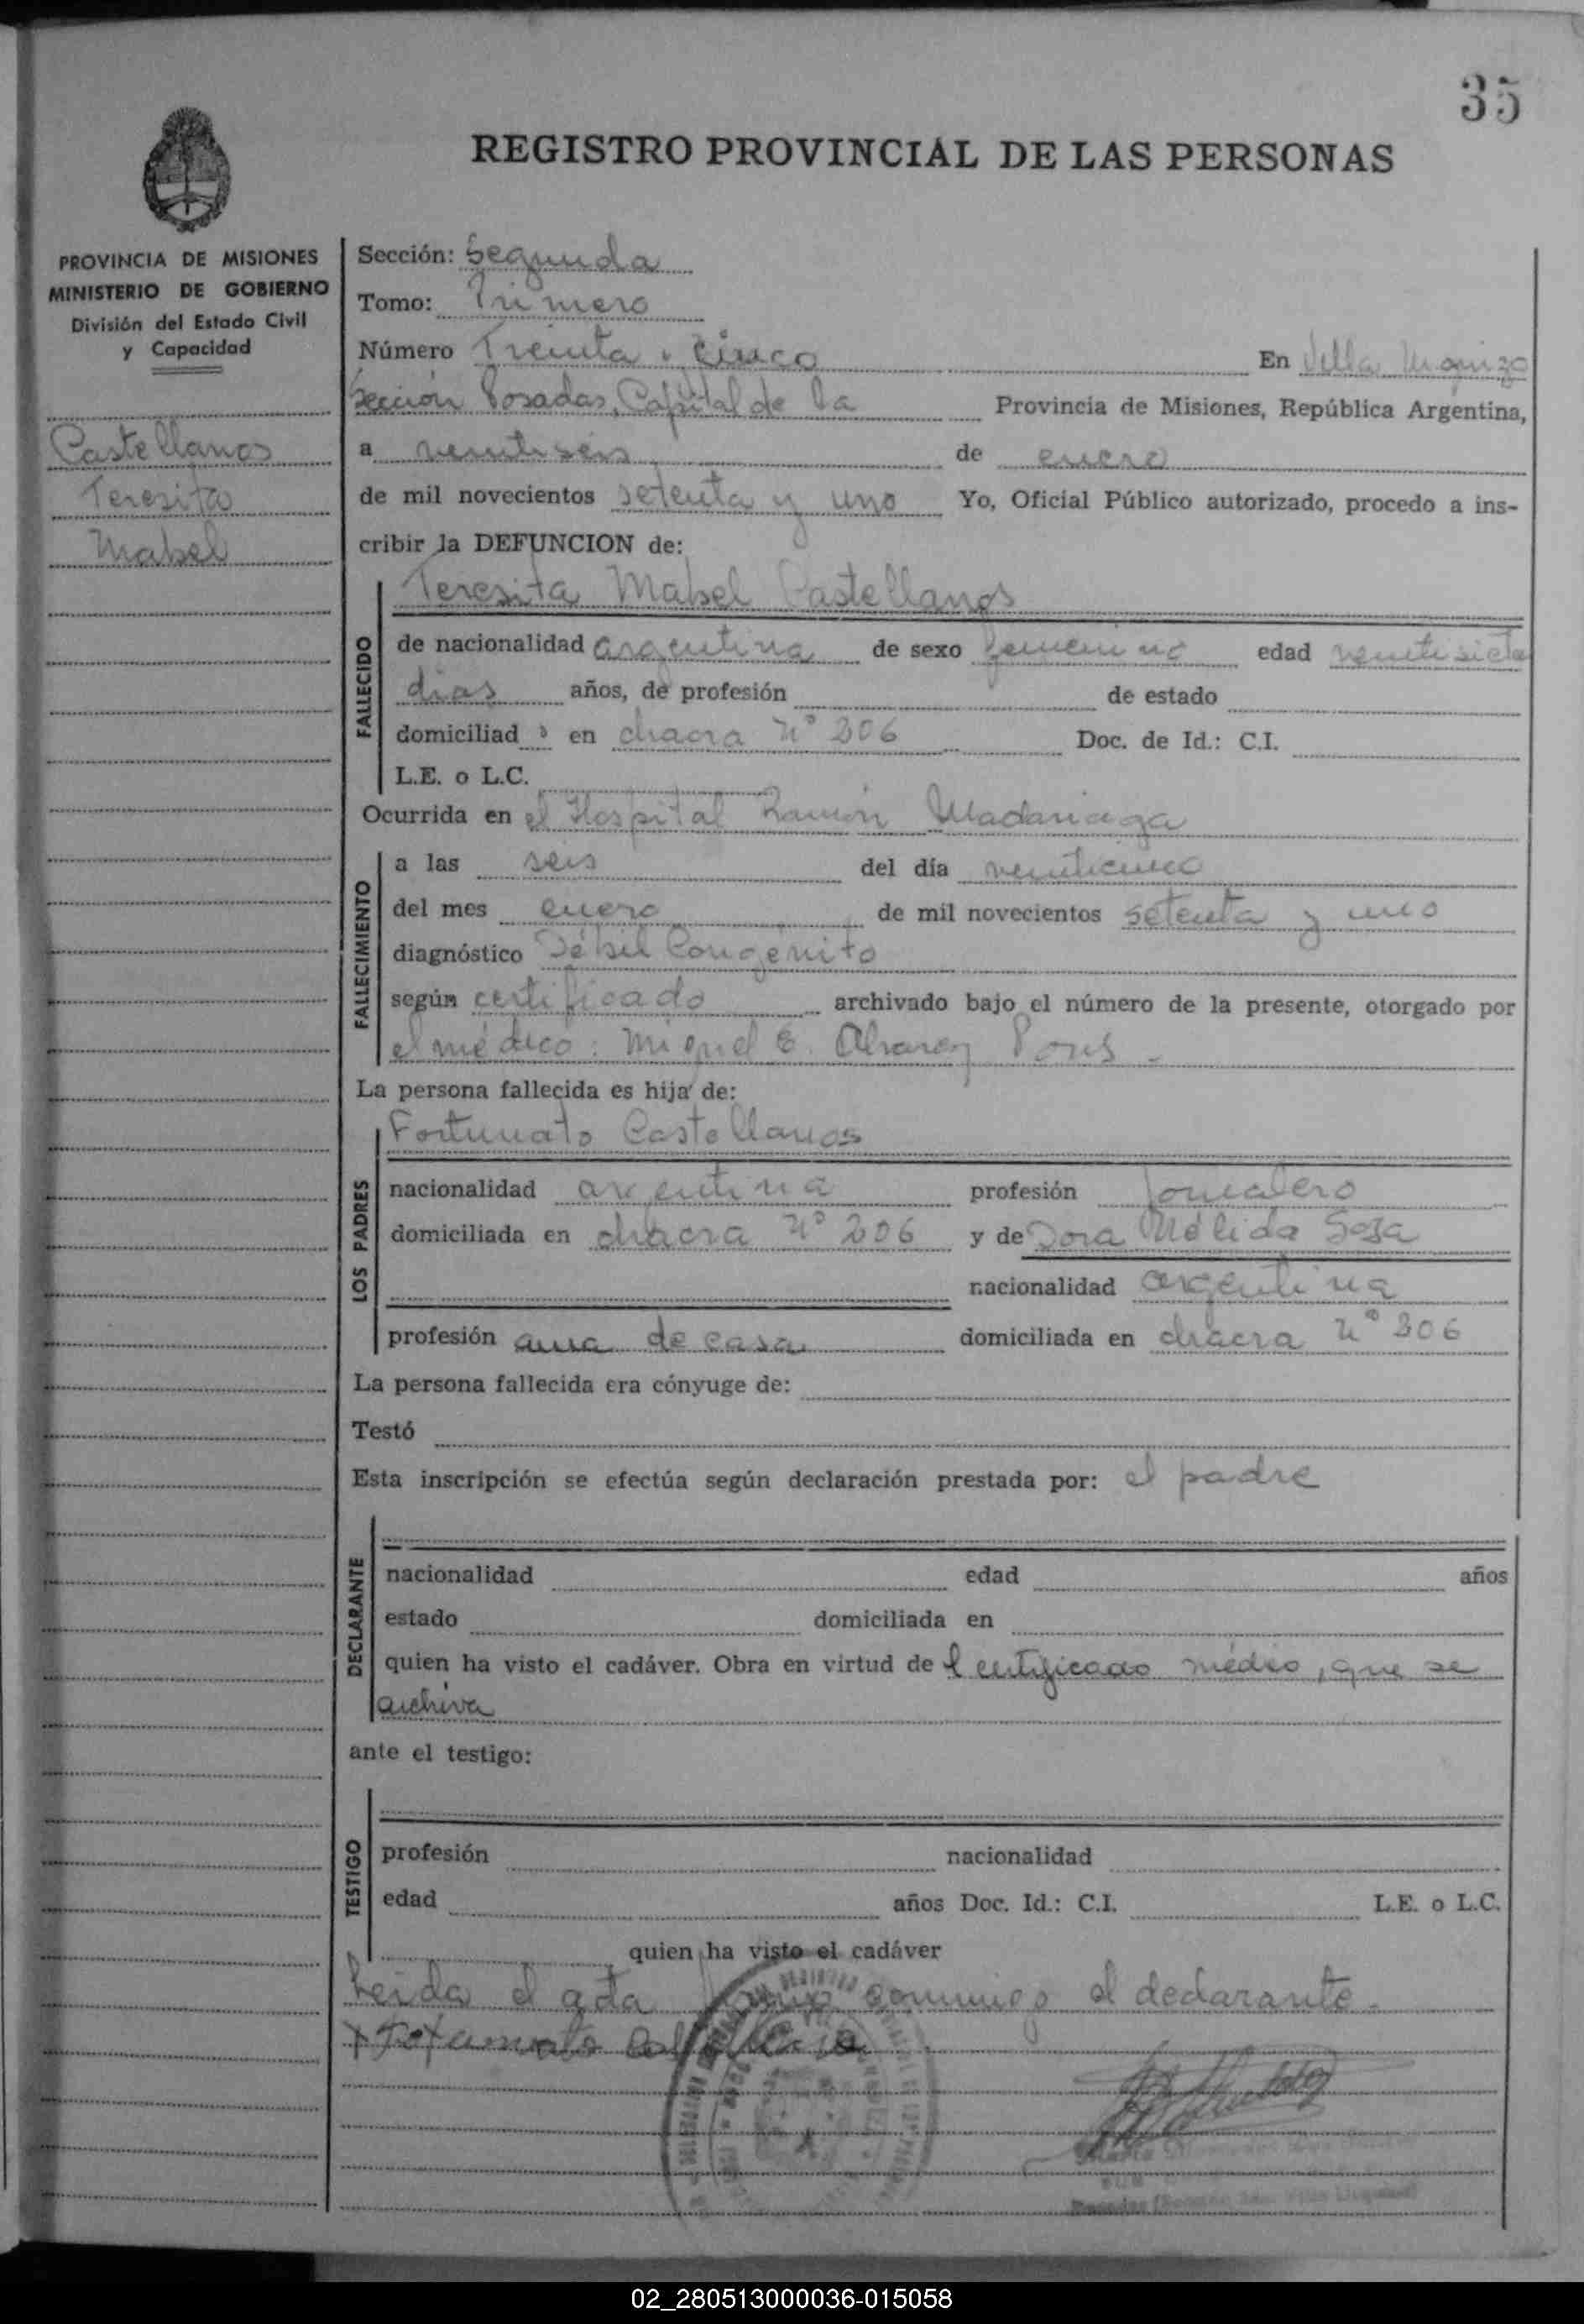 35
REGISTRO PROVINCIAL DE LAS PERSONAS
PROVINCIA DE MISIONES
MINISTERIO DE GOBIERNO
División del Estado Civil
y Capacidad
Castellanos
Teresita
Mabel
Sección: Segunda
Tomo: Primero
Número Treinta y cinco En Villa Urquiza
Sección Posadas, Capital de la Provincia de Misiones, República Argentina,
a veintiseis de enero
de mil novecientos setenta y uno Yo, Oficial Público autorizado, procedo a ins-
cribir la DEFUNCION de:
FALLECIDO
Teresita Mabel Castellanos
de nacionalidad argentina de sexo femenino edad veintisiete
dias años, de profesión de estado
domiciliad a en chacra Nº 206 Doc. de Id.: C.I.
L.E. o L.C.
Ocurrida en el Hospital Ramón Madariaga
FALLECIMIENTO
a las seis del día veinticinco
del mes enero de mil novecientos setenta y uno
diagnóstico Débil Congénito
según certificado archivado bajo el número de la presente, otorgado por
el médico: Miguel E. Alvarez Pons -
La persona fallecida es hija de:
LOS PADRES
Fortunato Castellanos
nacionalidad argentina profesión Jornalero
domiciliada en chacra Nº 206 y de Dora Nélida Sosa
nacionalidad argentina
profesión ama de casa domiciliada en chacra Nº 206
La persona fallecida era cónyuge de:
Testó
Esta inscripción se efectúa según declaración prestada por: el padre
DECLARANTE
nacionalidad edad años
estado domiciliada en
quien ha visto el cadáver. Obra en virtud de l certificado médico, que se
archiva
ante el testigo:
TESTIGO
profesión nacionalidad
edad años Doc. Id.: C.I. L.E. o L.C.
quien ha visto el cadáver
Leida el acta firma conmigo el declarante.
02_280513000036-015058